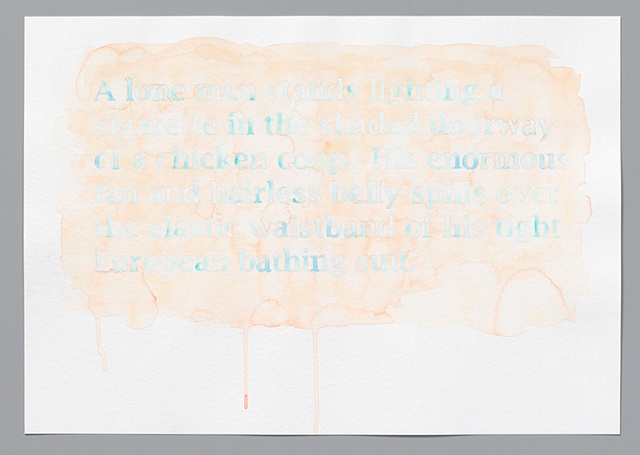 A lone man stands lighting a
cigarette in the shaded doorway
of a chicken coop. His enormous
tan and hairless belly spills over
the elastic waistband of his tight
European bathing suit.